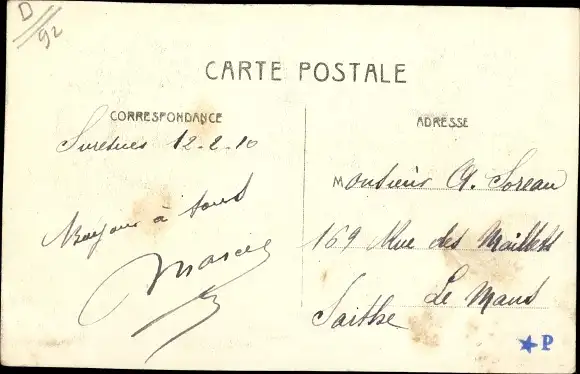 D/92
CARTE POSTALE
CORRESPONDANCE
Suresnes 12-2-10
Bonjour à tous
Marcel
ADRESSE
Monsieur A. Soreau
169 Rue des Maillets
Le Mans
Sarthe
★P